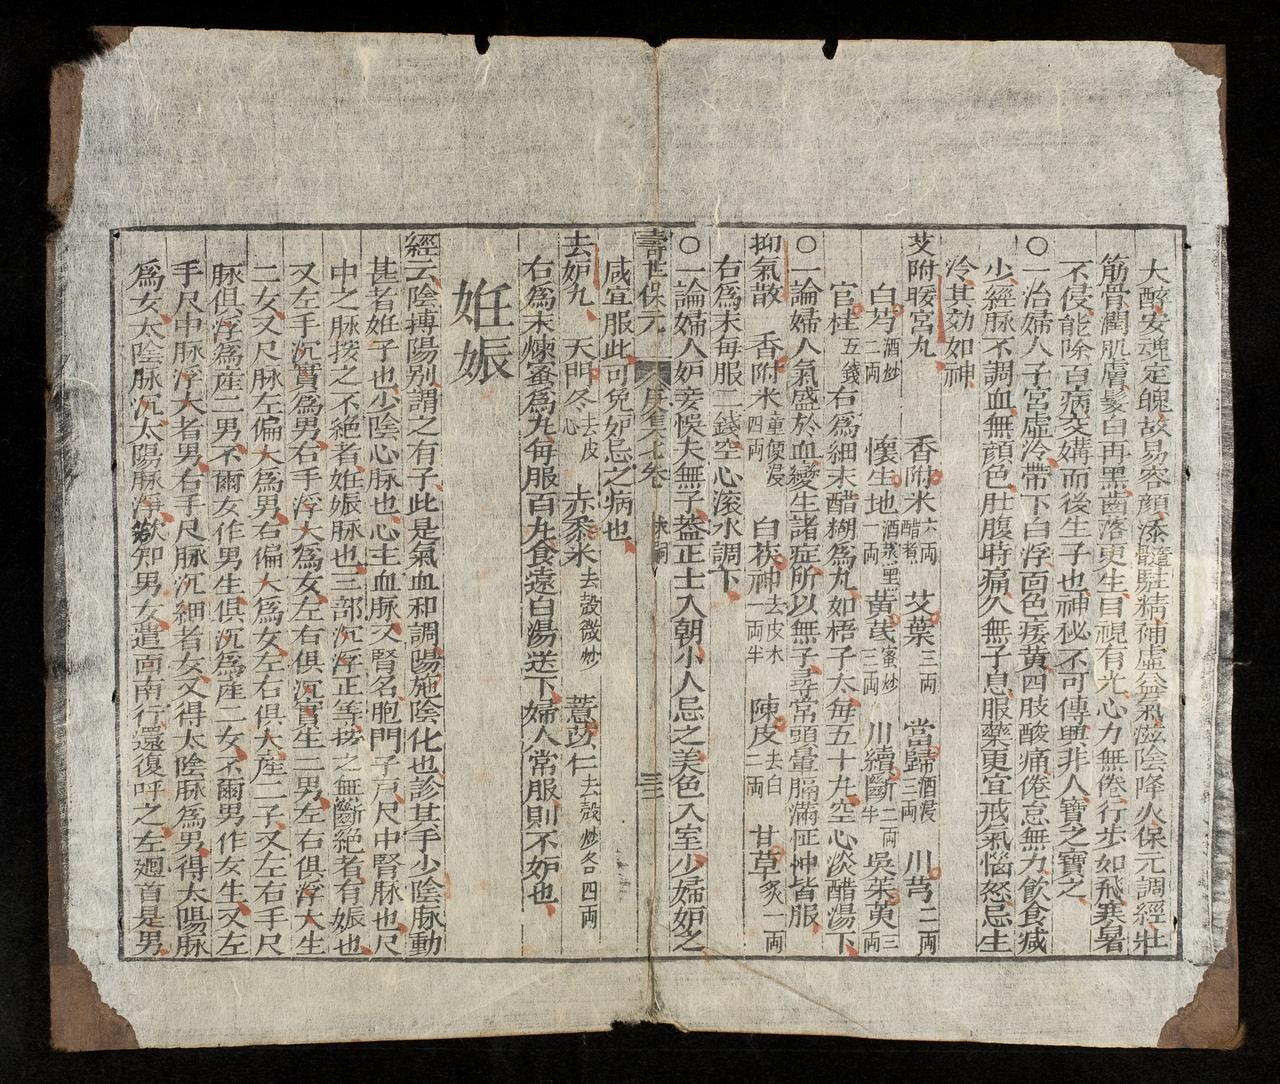 大醉安魂定魄故易容顏添髓駐精補虛益氣滋陰降火保元調經壯
筋骨潤肌膚髮白再黑齒落更生目視有光心力無倦行步如飛寒暑
不侵能除百病交媾而後生子也神秘不可傳與非人寶之寶之
○一治婦人子宮虛冷帶下白浮面色痿黃四肢酸痛倦怠無力飲食減
少經脉不調血無顏色肚腹時痛久無子息服藥更宜戒氣惱怒忌生
冷其効如神
艾附暖宮丸 香附米六兩醋煮 艾葉三兩 當歸酒浸三兩 川芎二兩
白芍酒炒二兩 懷生地酒蒸黑一兩 黃芪蜜炒三兩 川續斷二兩半 吳茱萸三兩
官桂五錢 右爲細末醋糊爲丸如梧子大每五十丸空心淡醋湯下
○一論婦人氣盛於血變生諸症所以無子尋常頭暈膈滿怔忡皆服
抑氣散 香附米童便浸四兩 白茯神去皮木一兩半 陳皮去白二兩 甘草炙一兩
右爲末每服二錢空心滾水調下
○一論婦人妒妾悞夫無子葢正士入朝小人忌之美色入室少婦妒之
壽世保元 卷 求嗣 三三
咸宜服此可免妒忌之病也
去妒丸 天門冬去皮心 赤黍米去殼微炒 薏苡仁去殼炒各四兩
右爲末煉蜜爲丸每服百丸食遠白湯送下婦人常服則不妒也
妊娠
經云陰搏陽別謂之有子此是氣血和調陽施陰化也診其手少陰脉動
甚者妊子也少陰心脉也心主血脉又腎名胞門子戸尺中腎脉也尺
中之脉按之不絶者妊娠脉也三部沉浮正等按之無斷絶者有娠也
又左手沉實爲男右手浮大爲女左右俱沉實生二男左右俱浮大生
二女又尺脉左偏大爲男右偏大爲女左右俱大産二子又左右手尺
脉俱浮爲産二男不爾女作男生俱沉爲産二女不爾男作女生又左
手尺中脉浮大者男右手尺脉沉細者女又得太陰脉爲男得太陽脉
爲女太陰脉沉太陽脉浮欲知男女遣面南行還復呼之左廻首是男